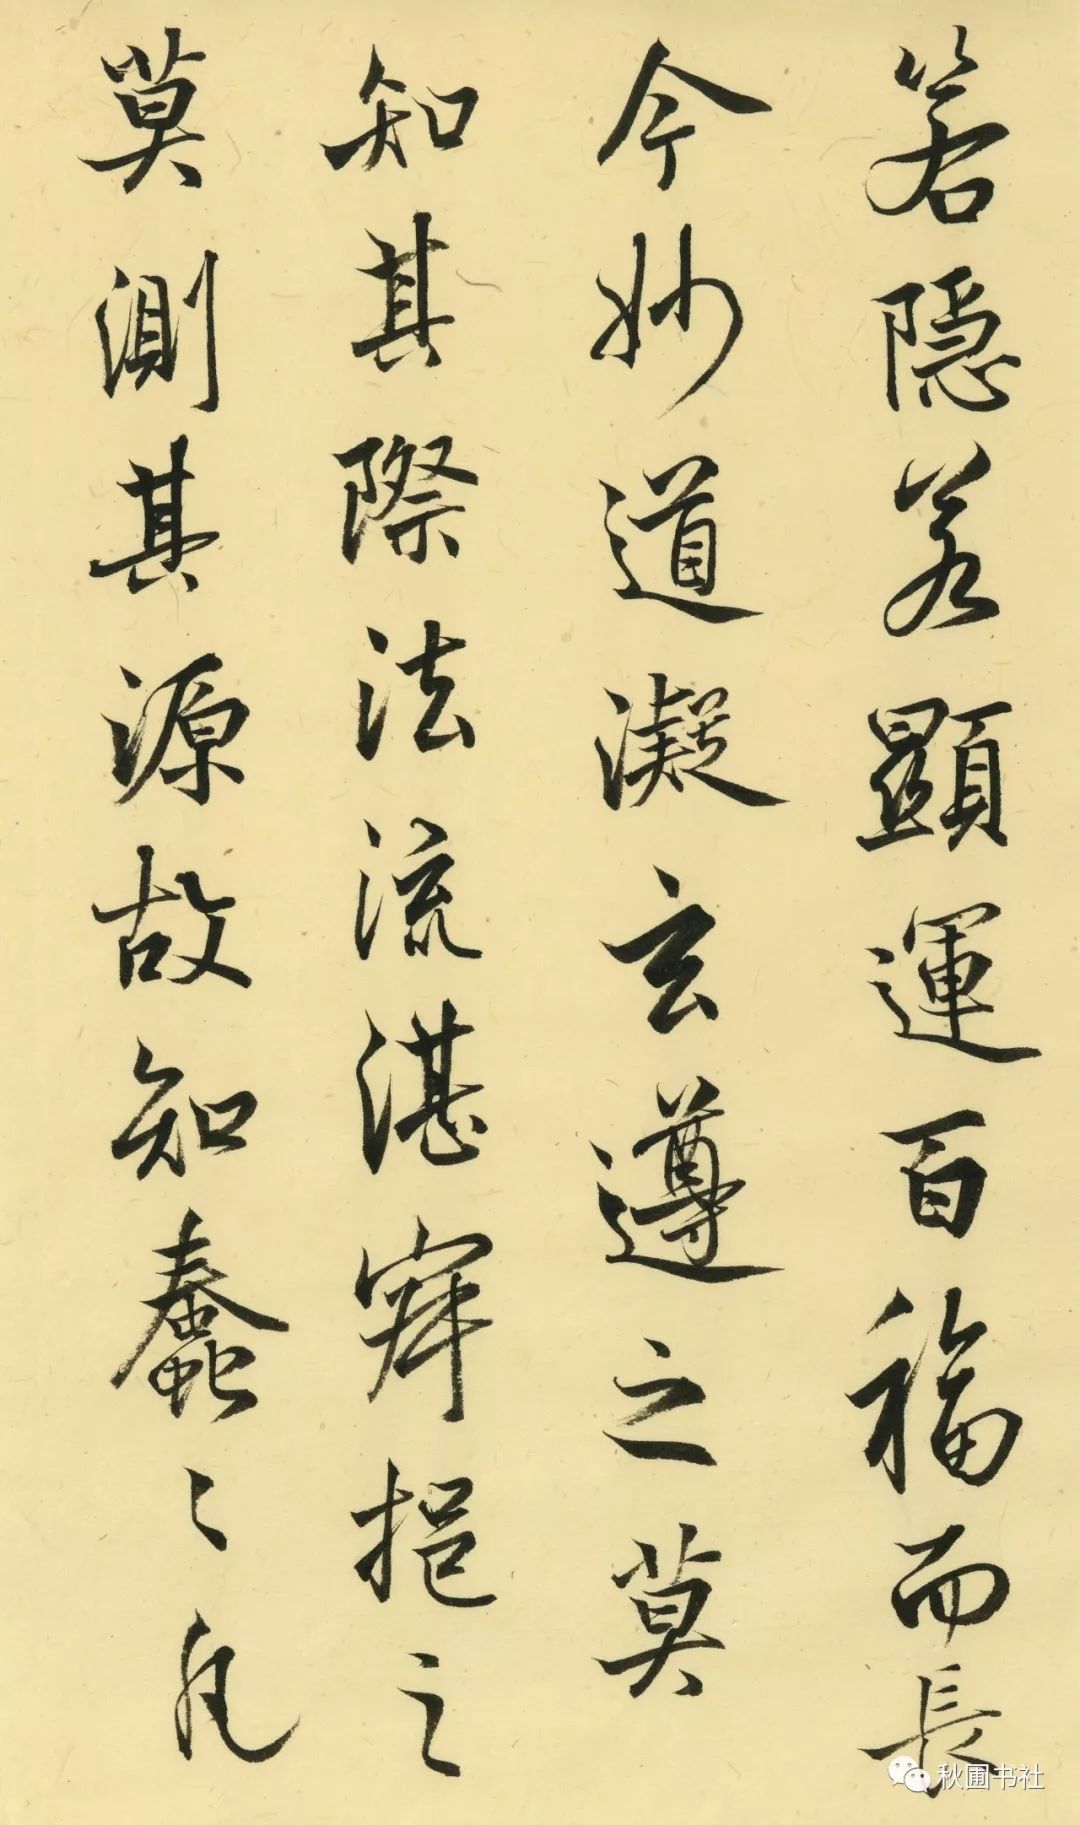 若隱若顯運百福而長
今妙道凝玄遵之莫
知其際法流湛寂挹之
莫測其源故知蠢〻凡
秋圃书社